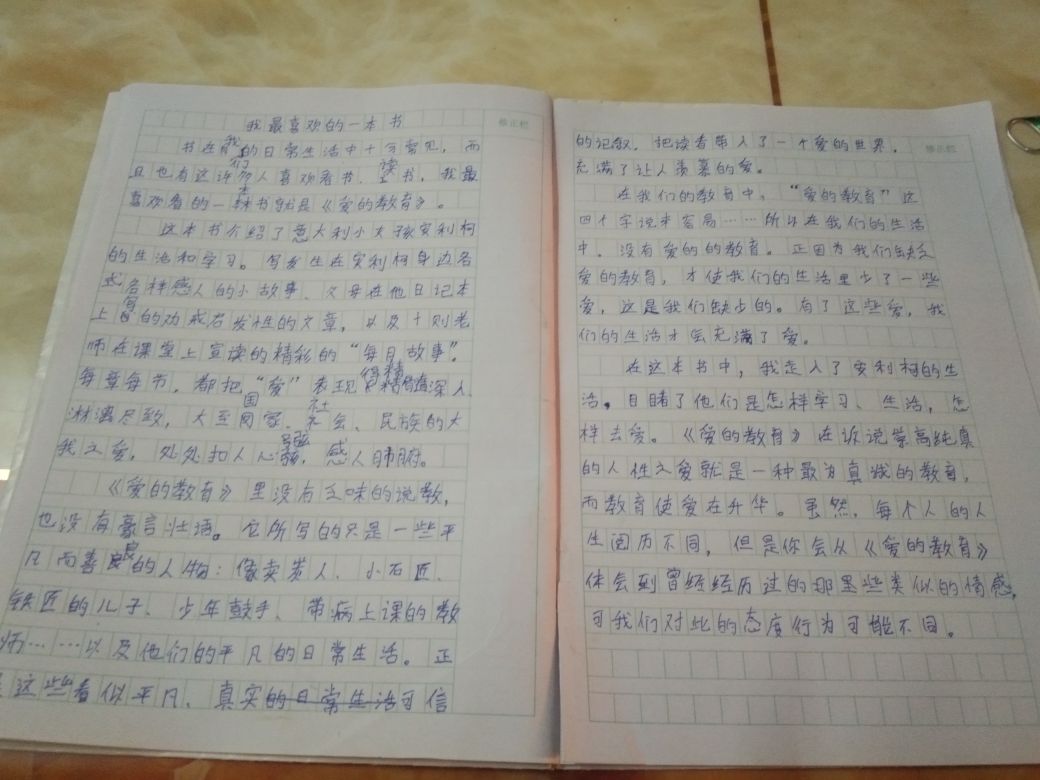 我最喜欢的一本书
修正栏
书在我们的日常生活中十分常见，而
且也有这许多人喜欢看书、读书，我最
喜欢看的一本书就是《爱的教育》。
这本书介绍了意大利小女孩安利柯
的生活和学习。写发生在安利柯身边各
式各样感人的小故事、父母在他日记本
上写的劝戒启发性的文章，以及十则老
师在课堂上宣读的精彩的“每月故事”。
每章每节，都把“爱”表现得精深入
淋漓尽致，大至国家、社会、民族的大
我之爱，处处扣人心弦，感人肺腑。
《爱的教育》里没有乏味的说教，
也没有豪言壮语。它所写的只是一些平
凡而善良的人物：像卖炭人、小石匠、
铁匠的儿子、少年鼓手、带病上课的教
师……以及他们的平凡的日常生活。正
是这些看似平凡、真实的日常生活可信
修正栏
的记叙，把读者带入了一个爱的世界，
充满了让人羡慕的爱。
在我们的教育中，“爱的教育”这
四个字说来容易……所以在我们的生活
中，没有爱的的教育。正因为我们缺乏
爱的教育，才使我们的生活里少了一些
爱，这是我们缺少的。有了这些爱，我
们的生活才会充满了爱。
在这本书中，我走入了安利柯的生
活，目睹了他们是怎样学习、生活，怎
样去爱。《爱的教育》在诉说崇高纯真
的人性之爱就是一种最为真诚的教育，
而教育使爱在升华。虽然，每个人的人
生阅历不同，但是你会从《爱的教育》
体会到曾经经历过的那些类似的情感，
可我们对此的态度行为可能不同。